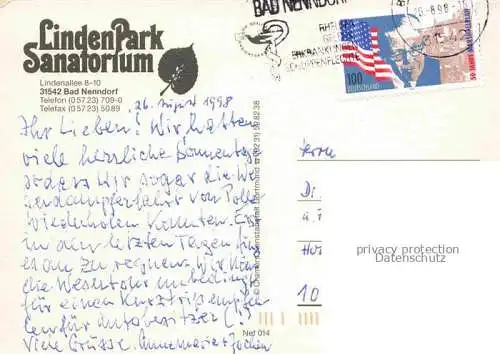 LindenPark
Sanatorium
Lindenallee 8-10
31542 Bad Nenndorf
Telefon (0 57 23) 709-0
Telefax (0 57 23) 50 89
BAD NENNDORF
RHEUMA
ERKRANKUNGEN
SCHUPPENFLECHTE
-8.98
100
DEUTSCHLAND
26. August 1998
Ihr Lieben! Wir hatten
viele herrliche Sonnentage
sodass wir sogar die We
serdampferfahrt von Polle
wiederholen konnten. Erst
in den letzten Tagen fing
es an zu regnen. Wir können
die Weserton unbedingt
für einen Kurztrip empfeh
len für Autobesitzer (!)
Viele Grüsse. Annemarie + Jochen
Nef 014
Herrn
Di
u. F
10
privacy protection
Datenschutz